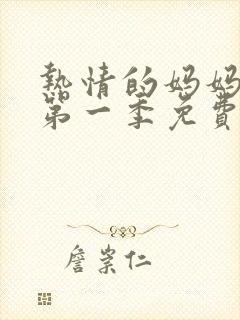 熱情的媽媽
第一季免費
詹崇仁